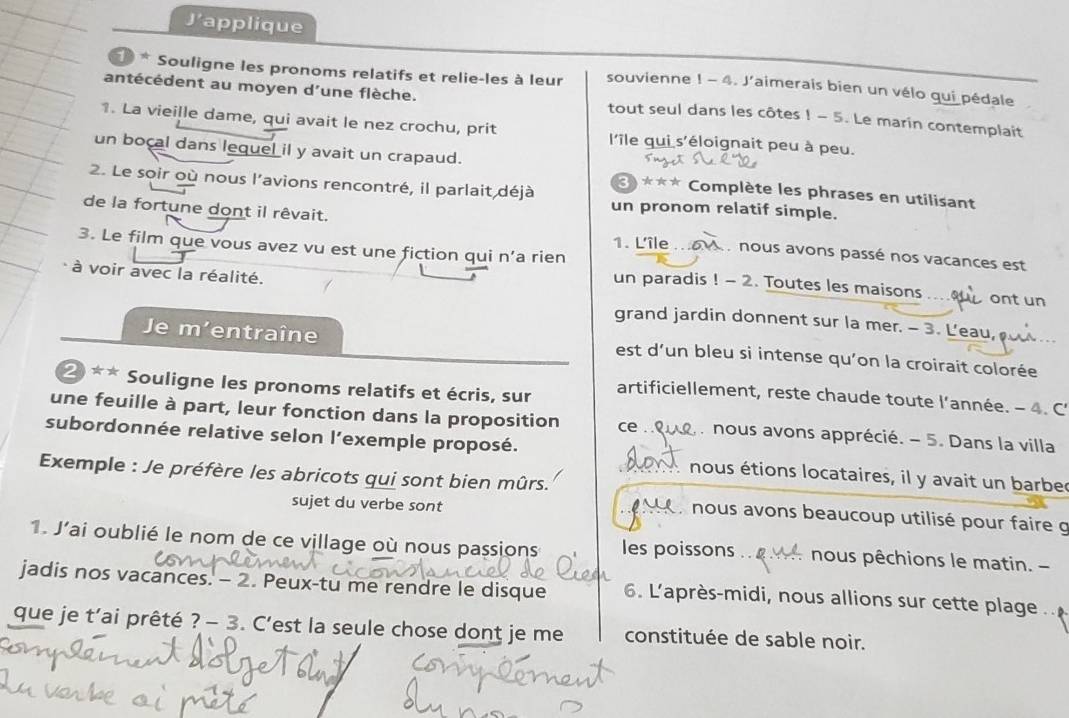 J'applique
1 * Souligne les pronoms relatifs et relie-les à leur
antécédent au moyen d'une flèche.
1. La vieille dame, qui avait le nez crochu, prit
un bocal dans lequel il y avait un crapaud.
2. Le soir où nous l'avions rencontré, il parlait déjà
de la fortune dont il rêvait.
3. Le film que vous avez vu est une fiction qui n'a rien
à voir avec la réalité.
Je m'entraîne
2 ** Souligne les pronoms relatifs et écris, sur
une feuille à part, leur fonction dans la proposition
subordonnée relative selon l'exemple proposé.
Exemple : Je préfère les abricots qui sont bien mûrs.
sujet du verbe sont
1. J'ai oublié le nom de ce village où nous passions
complèment ciconstanciel de lieu
jadis nos vacances. – 2. Peux-tu me rendre le disque
que je t'ai prêté ? – 3. C'est la seule chose dont je me
complément d'objet complément
du verbe ai prêté du
souvienne ! – 4. J'aimerais bien un vélo qui pédale
tout seul dans les côtes ! – 5. Le marin contemplait
l'île qui s'éloignait peu à peu.
sujet
3 *** Complète les phrases en utilisant
un pronom relatif simple.
1. L'île ...où... nous avons passé nos vacances est
un paradis ! – 2. Toutes les maisons ....qui ont un
grand jardin donnent sur la mer. – 3. L'eau, qui...
est d'un bleu si intense qu'on la croirait colorée
artificiellement, reste chaude toute l'année. – 4. C'
ce ..que.. nous avons apprécié. – 5. Dans la villa
dont nous étions locataires, il y avait un barbec
que nous avons beaucoup utilisé pour faire g
les poissons ..que... nous pêchions le matin. –
6. L'après-midi, nous allions sur cette plage ..
constituée de sable noir.